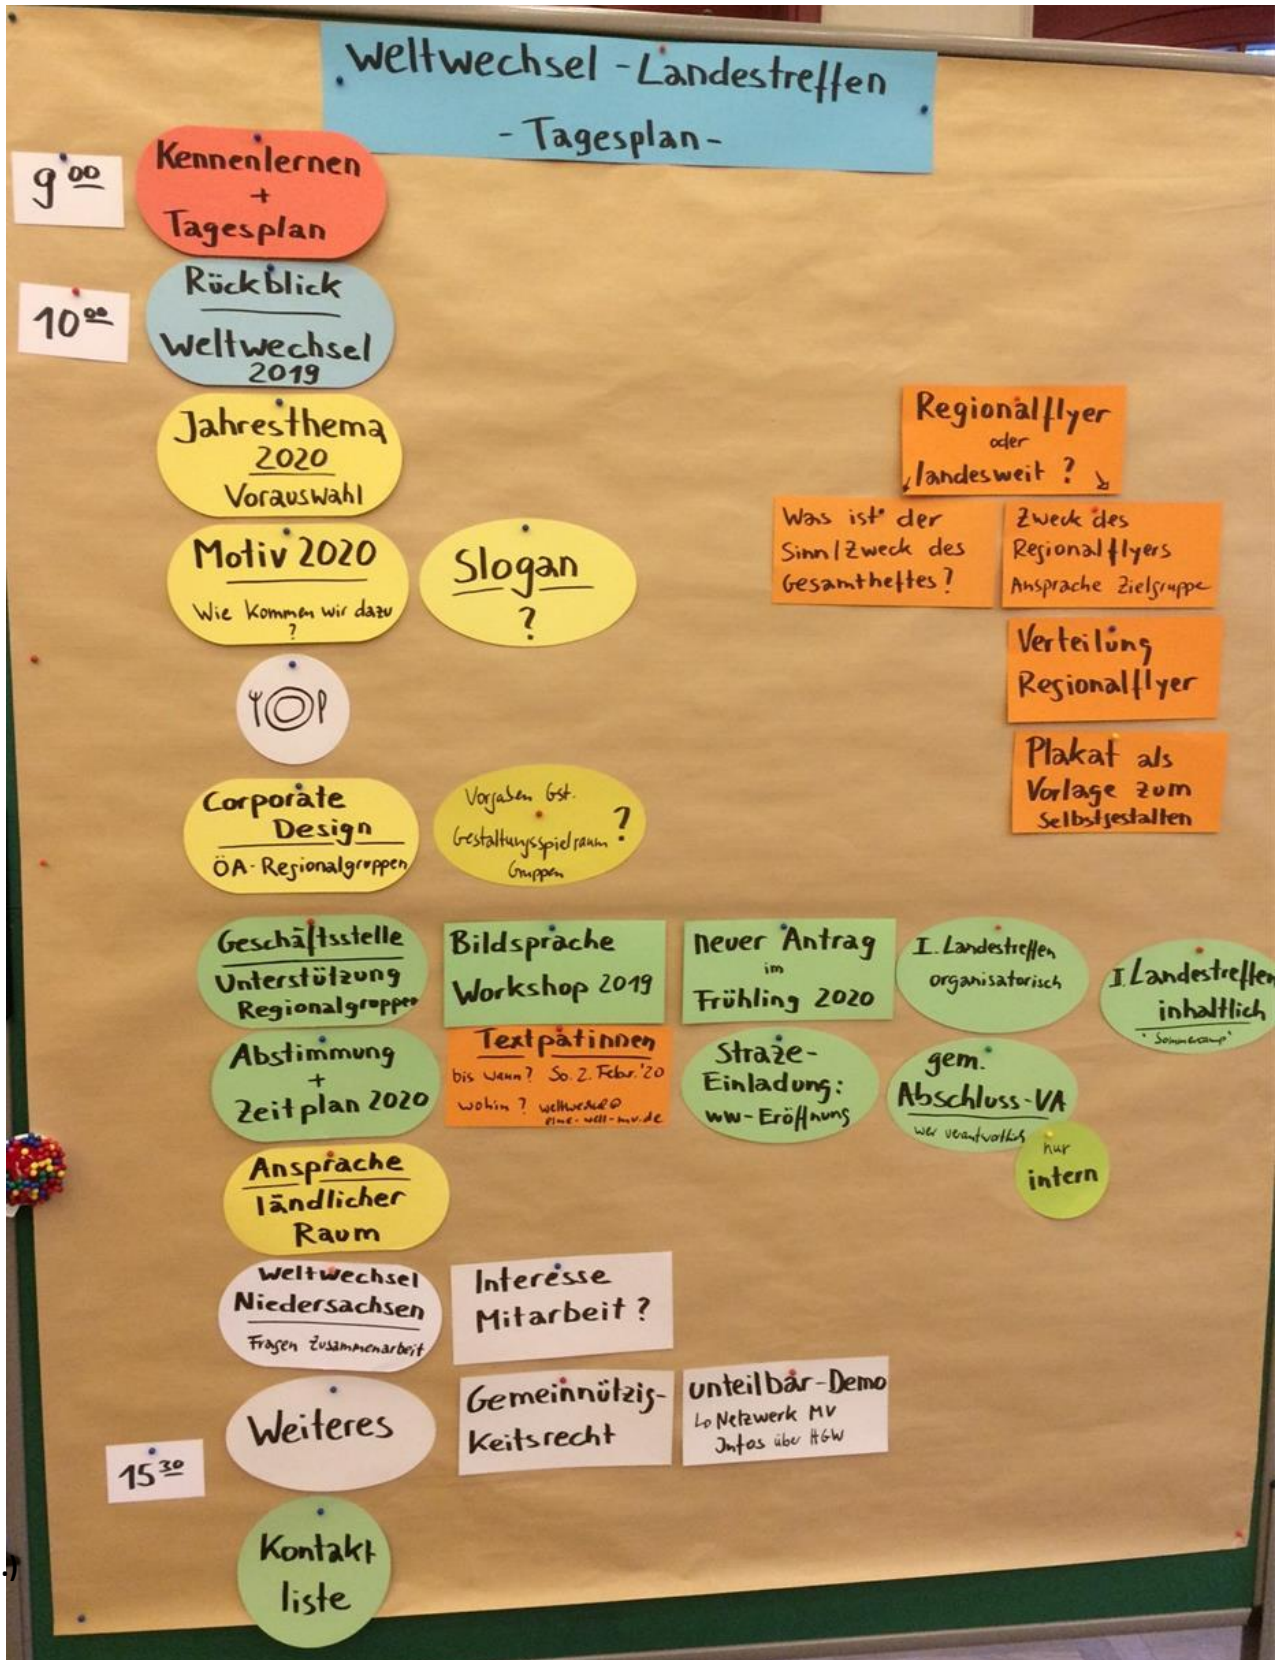 Weltwechsel - Landestreffen
- Tagesplan -
9 00
Kennenlernen
+
Tagesplan
10 00
Rückblick
Weltwechsel
2019
Jahresthema
2020
Vorauswahl
Motiv 2020
Wie kommen wir dazu
?
Slogan
?
Regionalflyer
oder
landesweit ?
Was ist der
Sinn/Zweck des
Gesamtheftes?
Zweck des
Regionalflyers
Ansprache Zielgruppe
Verteilung
Regionalflyer
Plakat als
Vorlage zum
Selbstgestalten
Corporate
Design
ÖA-Regionalgruppen
Vorgaben Gst.
Gestaltungsspielraum ?
Gruppen
Geschäftsstelle
Unterstützung
Regionalgruppen
Bildsprache
Workshop 2019
neuer Antrag
im
Frühling 2020
I. Landestreffen
organisatorisch
I. Landestreffen
inhaltlich
"Sommercamp"
Abstimmung
+
Zeitplan 2020
Textpatinnen
bis wann? So. 2. Febr. '20
wohin? weltwechsel@
eine-welt-mv.de
Straze-
Einladung:
ww-Eröffnung
gem.
Abschluss-VA
wer verantwortlich
nur
intern
Ansprache
ländlicher
Raum
Weltwechsel
Niedersachsen
Fragen Zusammenarbeit
Interesse
Mitarbeit?
Weiteres
Gemeinnützig-
keitsrecht
unteilbar-Demo
Netzwerk MV
Infos über HGW
15 30
Kontakt
liste
.)